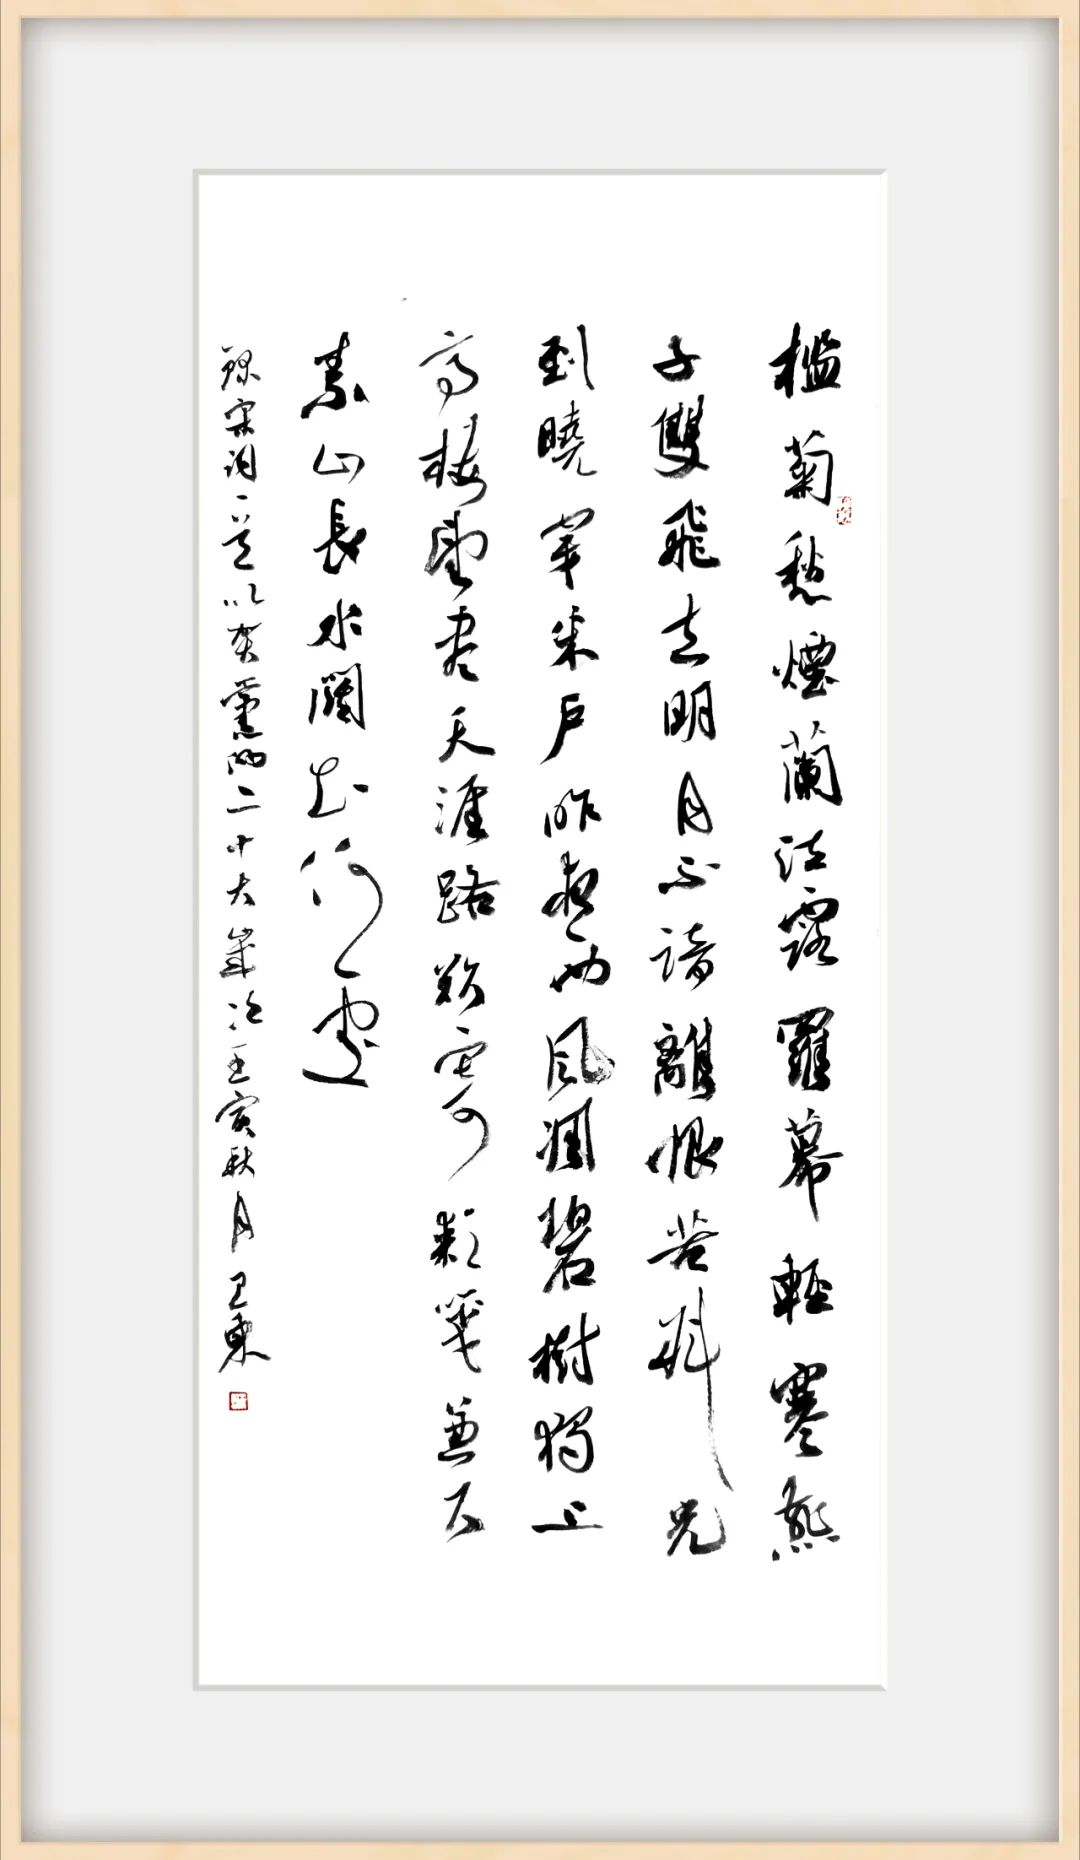 檻菊愁煙蘭泣露羅幕輕寒燕
子雙飛去明月不諳離恨苦斜光
到曉穿朱户昨夜西風凋碧樹獨上
高樓望盡天涯路欲寄彩箋兼尺
素山長水闊知何處
錄宋詞一首以賀黨的二十大歲次壬寅秋月卫東